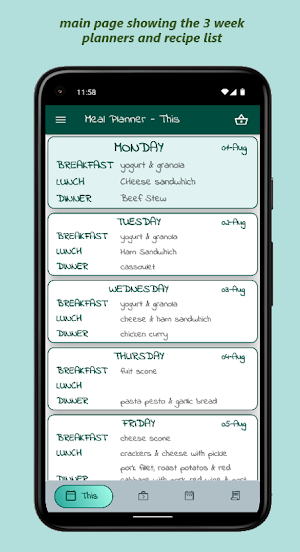 main page showing the 3 week
planners and recipe list
11:58
Meal Planner - This
MONDAY 01-Aug
BREAKFAST yogurt & granola
LUNCH Cheese sandwhich
DINNER Beef Stew
TUESDAY 02-Aug
BREAKFAST yogurt & granola
LUNCH Ham Sandwhich
DINNER cassowet
WEDNESDAY 03-Aug
BREAKFAST yogurt & granola
LUNCH cheese & ham sandwhich
DINNER chicken curry
THURSDAY 04-Aug
BREAKFAST fuit scone
LUNCH
DINNER pasta pesto & garlic bread
FRIDAY 05-Aug
BREAKFAST cheese scone
LUNCH crackers & cheese with pickle
pork fillet, roast potatos & red
DINNER cabbage with pork red wine &
This